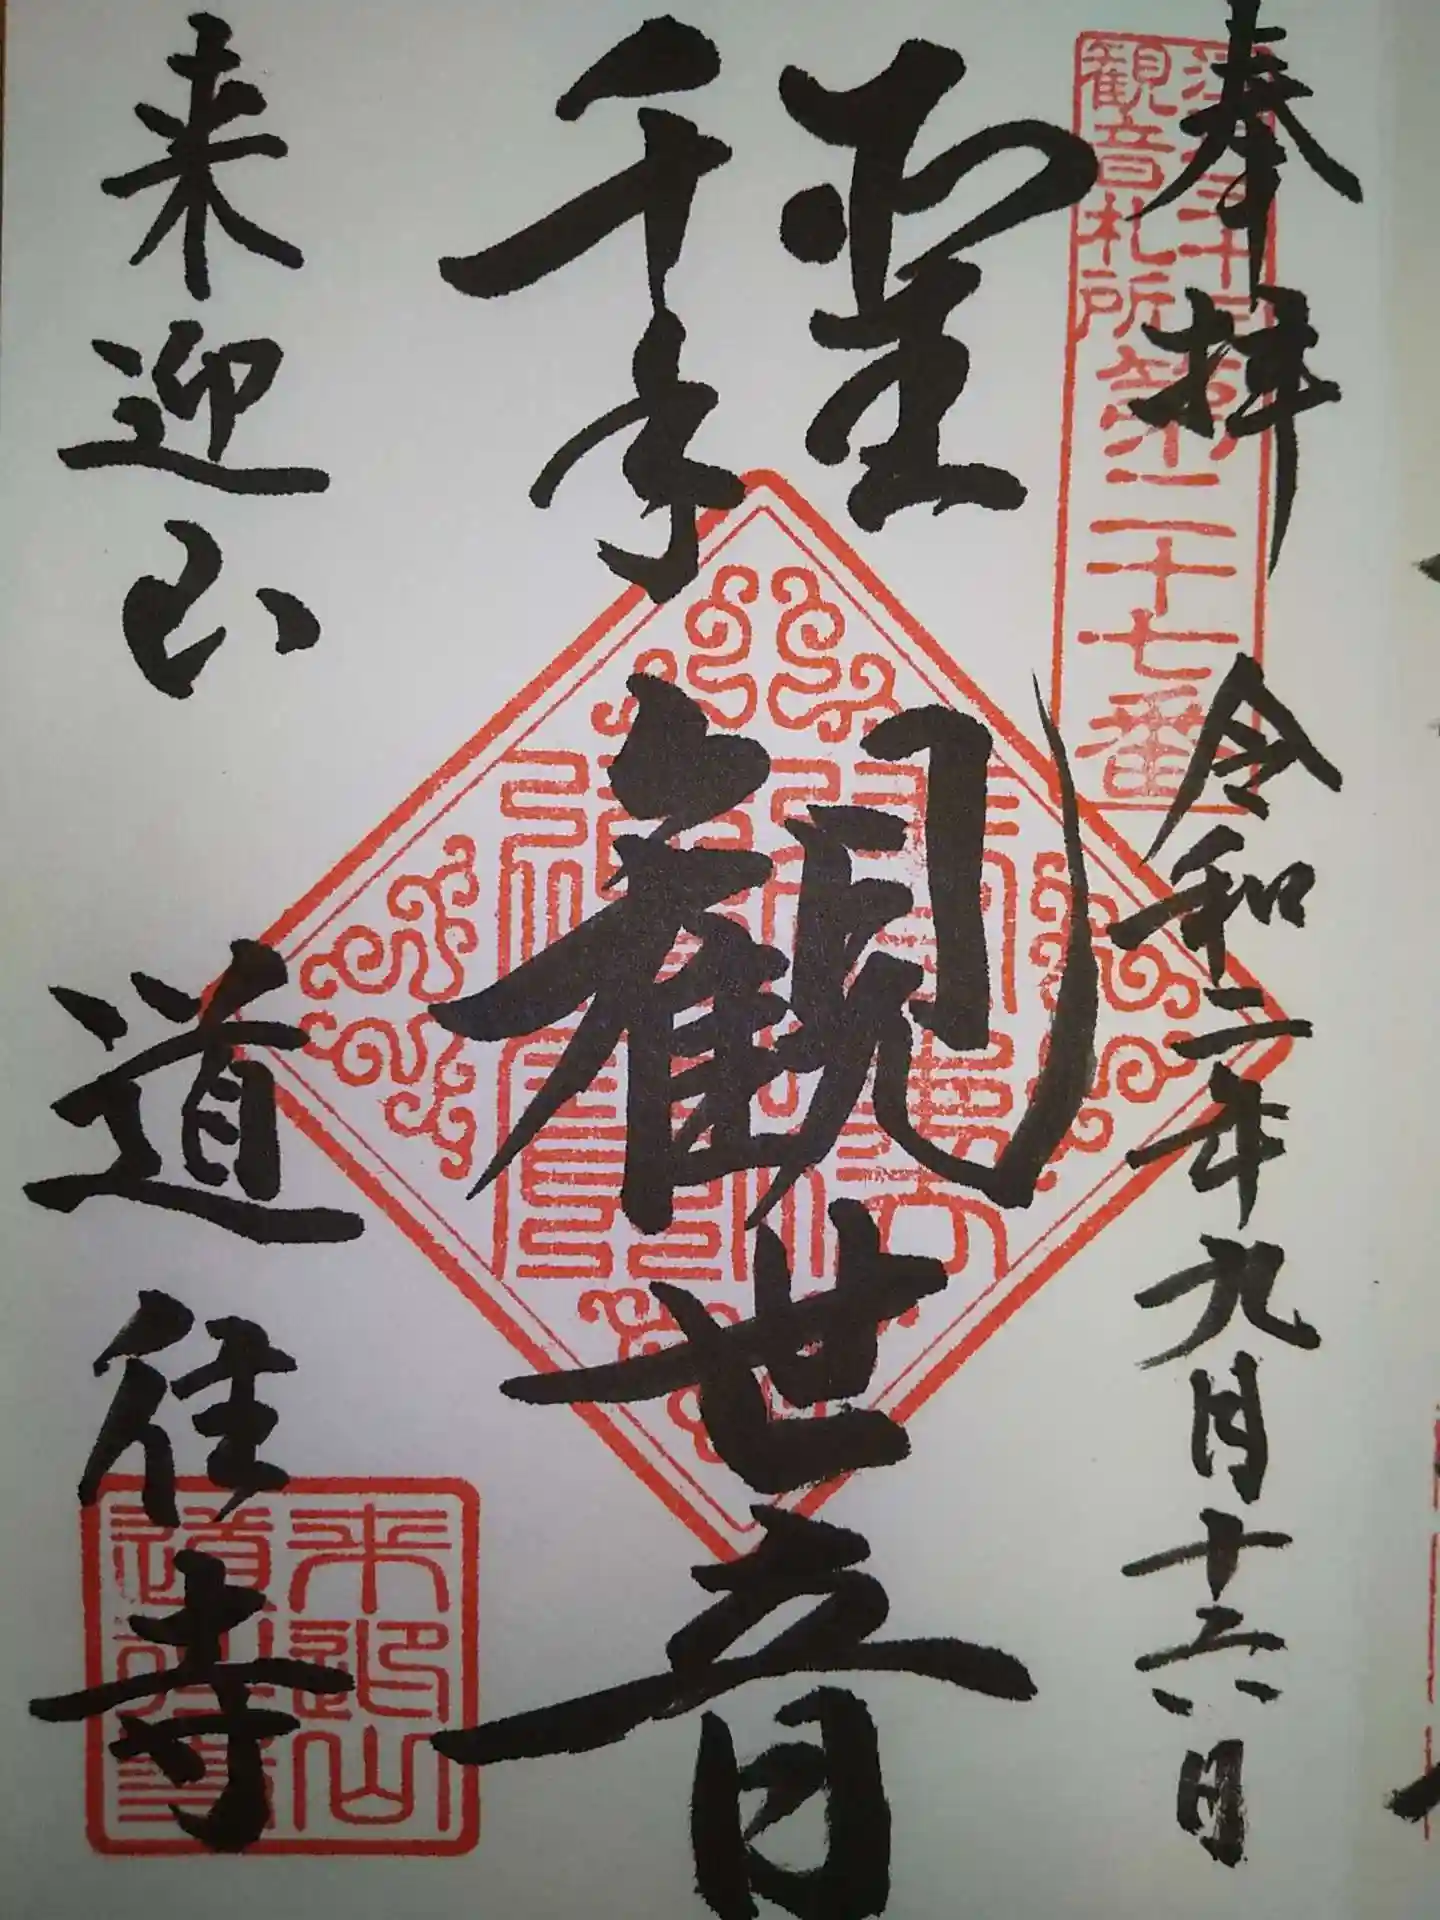 奉拝 令和二年九月十六日
観音札所第二十七番
聖
千手
観世音
来迎山 道住寺
来迎山
道住寺